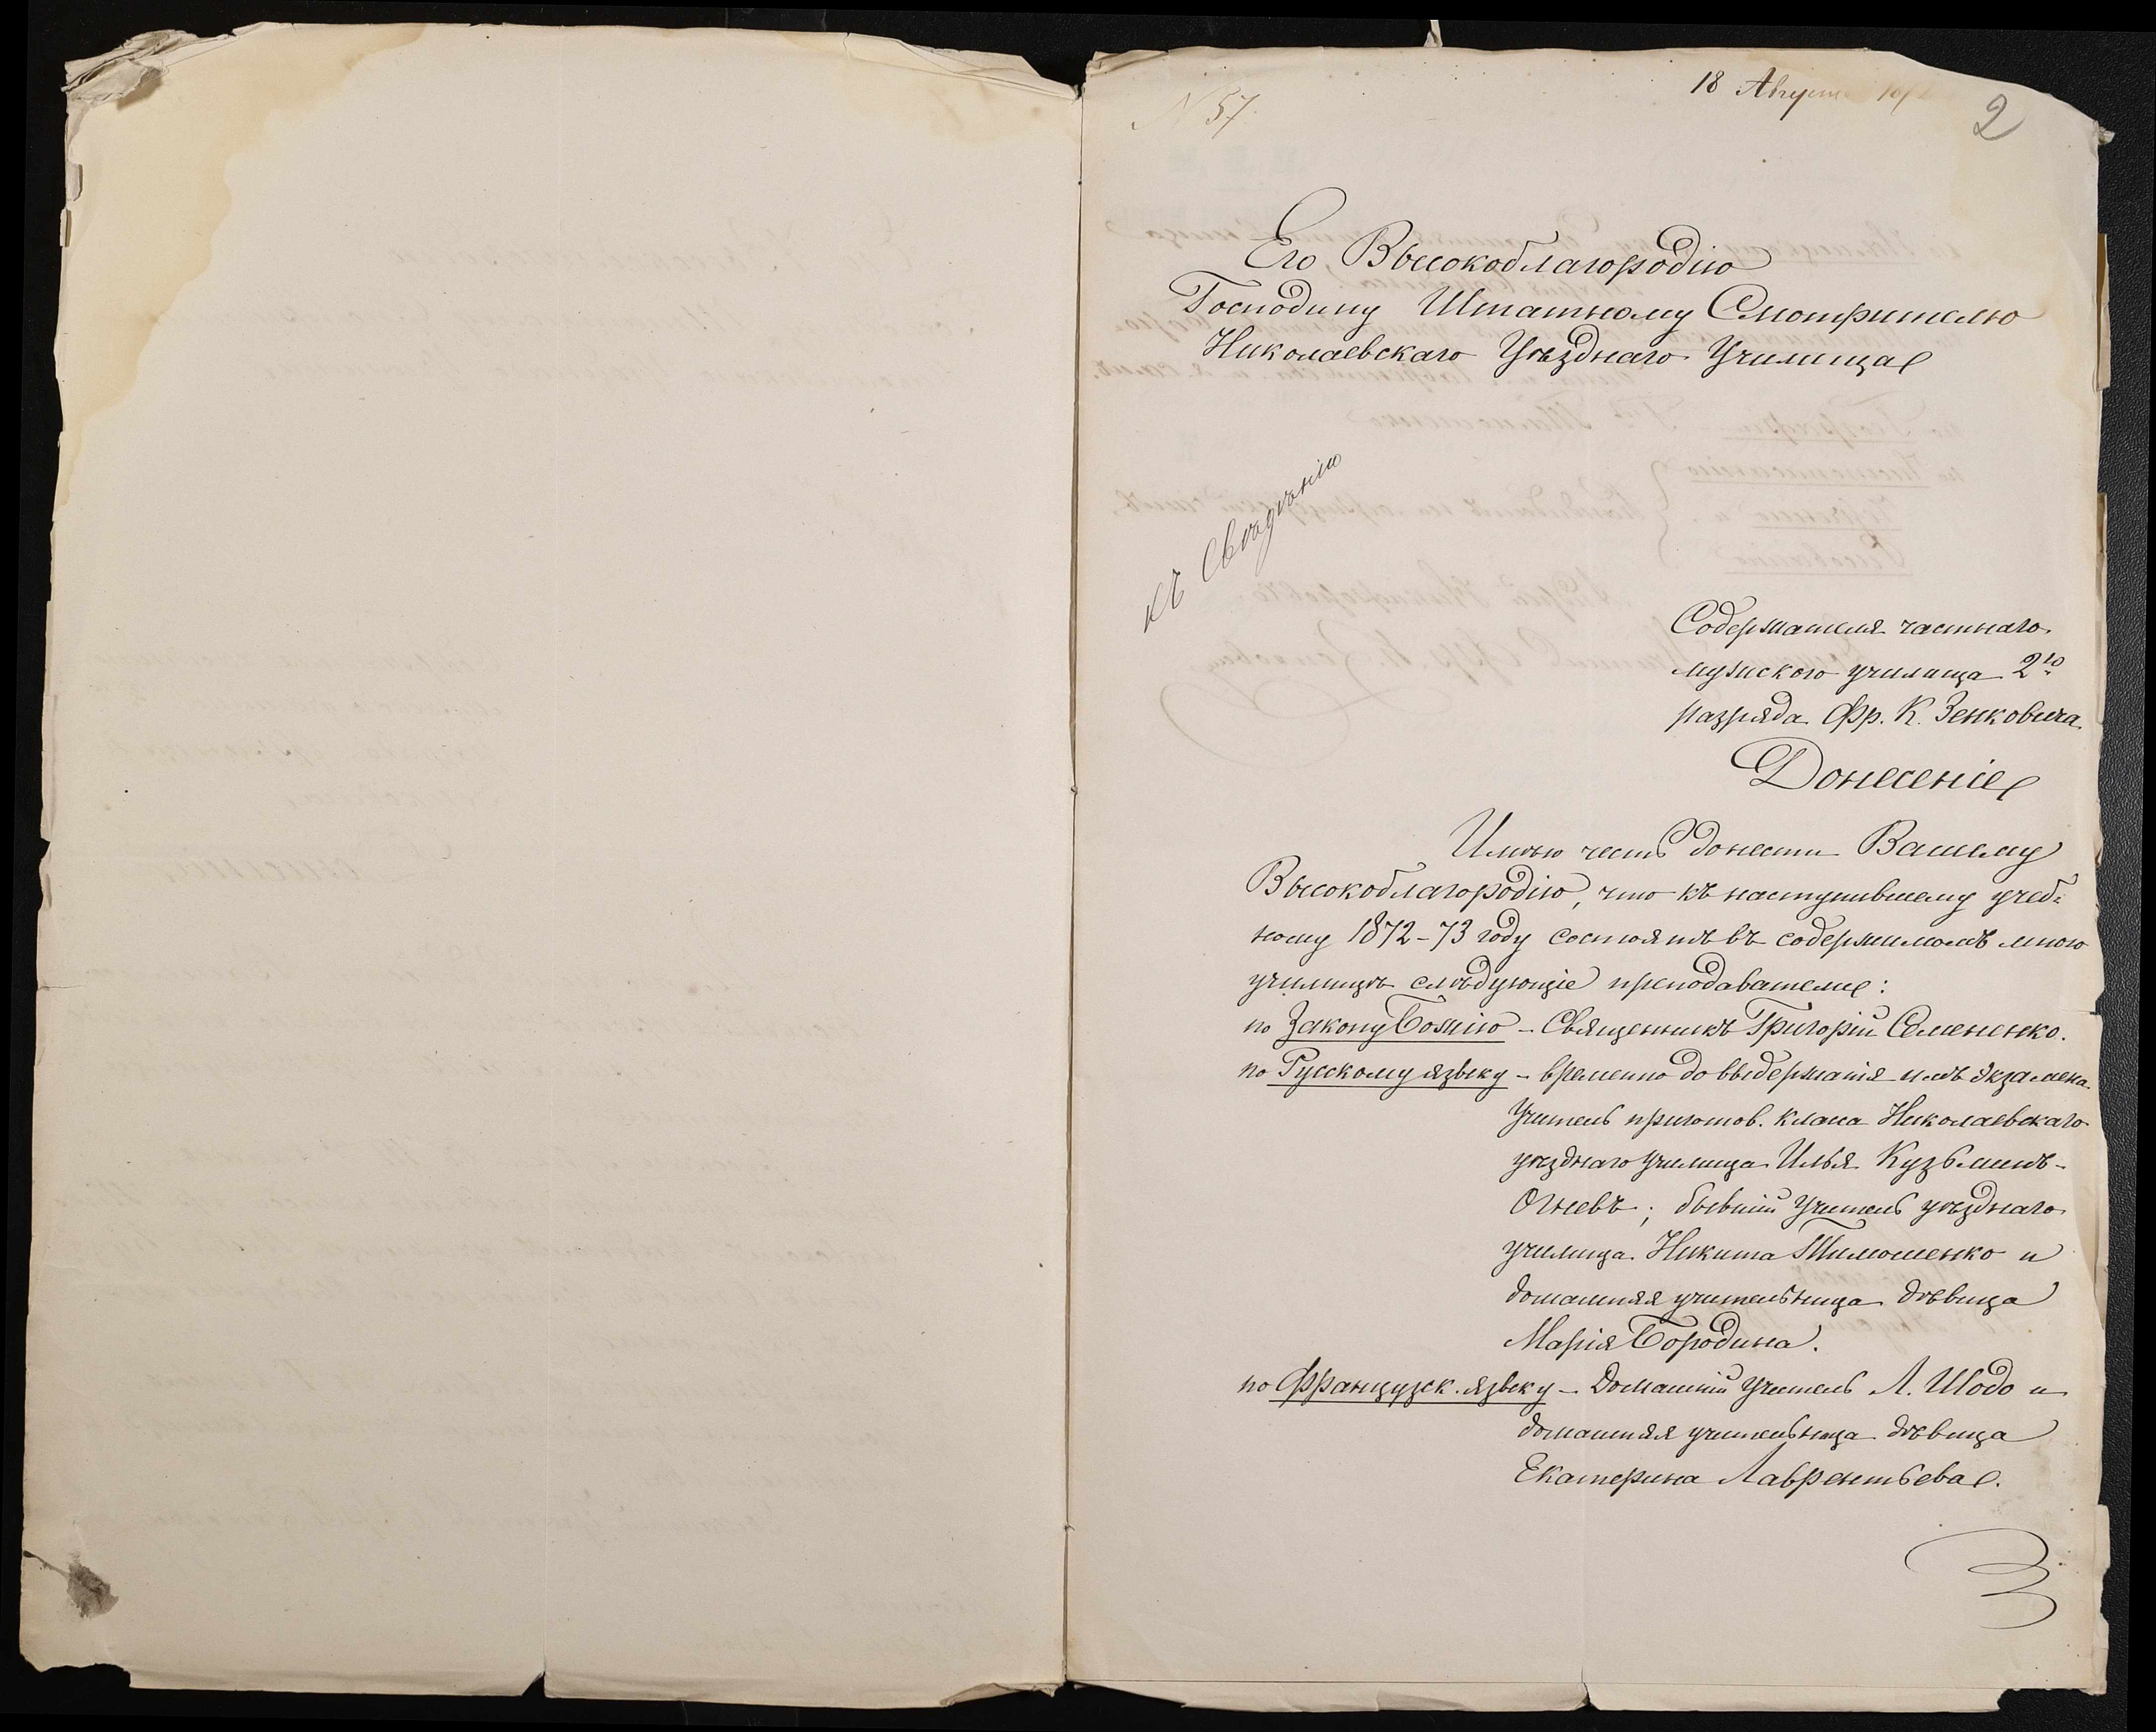 N 57.
18 Августа 187
2
Его Высокоблагородію
Господину Штатному Смотрителю
Николаевскаго Уѣзднаго Училища
къ Свѣдѣнію
Содержателя частнаго
мужскаго училища 2го
разряда Фр. К. Зенковича
Донесеніе
Имѣю честь донести Вашему
Высокоблагородію, что къ наступившему учеб-
ному 1872-73 году состоятъ въ содержимомъ мною
училищѣ слѣдующіе преподаватели:
по Закону Божію – Священникъ Григорій Семененко.
по Русскому языку – временно до выдержанія имъ экзамена
Учитель приготов. класса Николаевскаго
уѣзднаго Училища Илья Кузьминъ-
Огневъ; бывшій Учитель уѣзднаго
училища Никита Тимошенко и
домашняя учительница дѣвица
Марія Бородина.
по Французск. языку – Домашній Учитель Л. Шодо и
домашняя учительница дѣвица
Екатерина Лаврентьева.